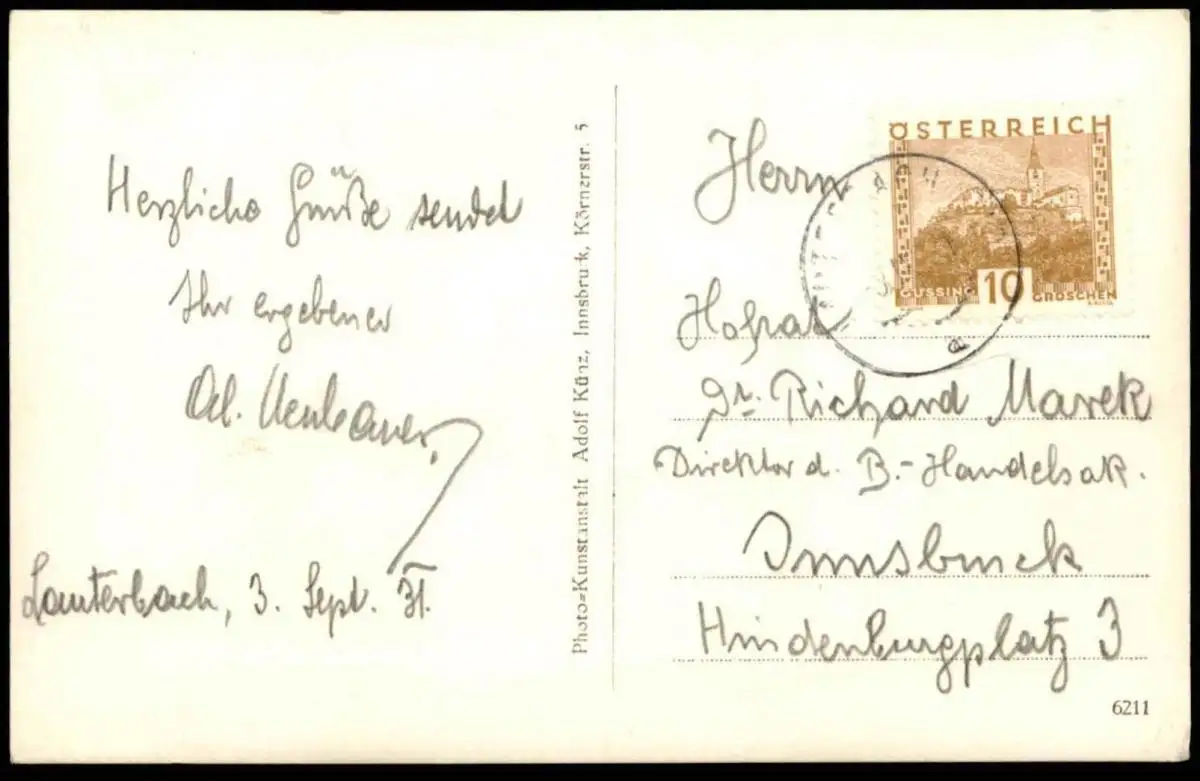 Herzliche Grüße sendet
Ihr ergebener
Ad. Neuhauser
Lauterbach, 3. Sept. 31.
Photo=Kunstanstalt Adolf Künz, Innsbruck, Körnerstr. 5
ÖSTERREICH
GÜSSING 10 GROSCHEN
a
Herrn
Hofrat
Dr. Richard Marek
Direktor d. B.-Handelsak.
Innsbruck
Hindenburgplatz 3
6211